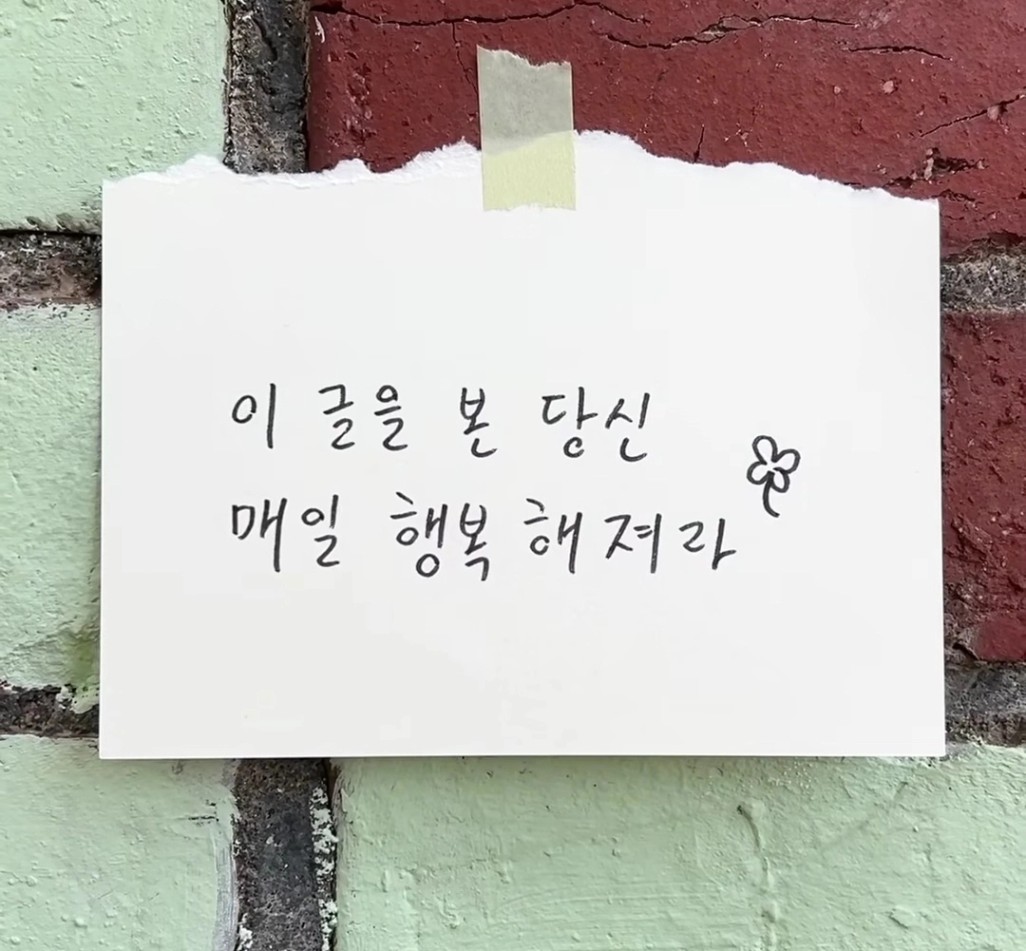 이 글을 본 당신
매일 행복 해져라